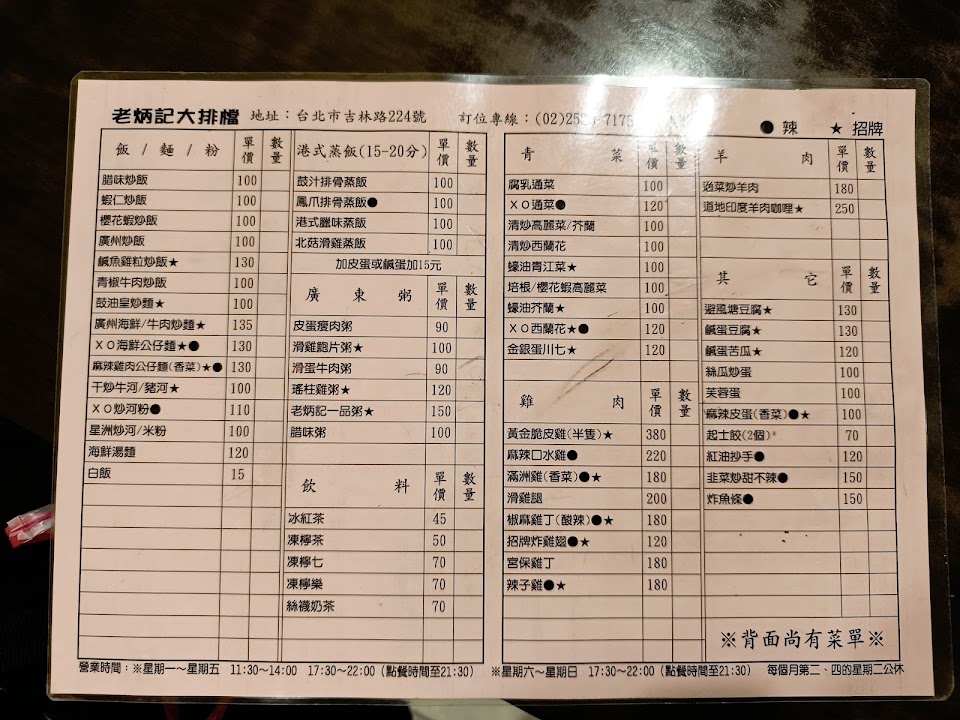 老炳記大排檔 地址：台北市吉林路224號 訂位專線：(02)25 -7175 ●辣 ★招牌
飯/麵/粉 單價 數量
腊味炒飯 100
蝦仁炒飯 100
櫻花蝦炒飯 100
廣州炒飯 100
鹹魚雞粒炒飯★ 130
青椒牛肉炒飯 100
豉油皇炒麵★ 100
廣州海鮮/牛肉炒麵★ 135
XO海鮮公仔麵★● 130
麻辣雞肉公仔麵(香菜)★● 130
干炒牛河/豬河★ 100
XO炒河粉● 110
星洲炒河/米粉 100
海鮮湯麵 120
白飯 15
港式蒸飯(15-20分) 單價 數量
豉汁排骨蒸飯 100
鳳爪排骨蒸飯● 100
港式臘味蒸飯 100
北菇滑雞蒸飯 100
加皮蛋或鹹蛋加15元
廣東粥 單價 數量
皮蛋瘦肉粥 90
滑雞鮑片粥★ 100
滑蛋牛肉粥 90
瑤柱雞粥★ 120
老炳記一品粥★ 150
腊味粥 100
飲料 單價 數量
冰紅茶 45
凍檸茶 50
凍檸七 70
凍檸樂 70
絲襪奶茶 70
青菜 單價 數量
腐乳通菜 100
XO通菜● 120
清炒高麗菜/芥蘭 100
清炒西蘭花 100
蠔油青江菜★ 100
培根/櫻花蝦高麗菜 100
蠔油芥蘭★ 100
XO西蘭花★● 120
金銀蛋川七★ 120
雞肉 單價 數量
黃金脆皮雞(半隻)★ 380
麻辣口水雞● 220
滿洲雞(香菜)●★ 180
滑雞腿 200
椒麻雞丁(酸辣)●★ 180
招牌炸雞翅●★ 120
宮保雞丁 180
辣子雞●★ 180
羊肉 單價 數量
通菜炒羊肉 180
道地印度羊肉咖哩★ 250
其它 單價 數量
避風塘豆腐★ 130
鹹蛋豆腐★ 130
鹹蛋苦瓜★ 120
絲瓜炒蛋 100
芙蓉蛋 100
麻辣皮蛋(香菜)●★ 100
起士餃(2個) 70
紅油抄手● 120
韭菜炒甜不辣● 150
炸魚條● 150
※背面尚有菜單※
營業時間：※星期一～星期五 11:30～14:00 17:30～22:00(點餐時間至21:30) ※星期六～星期日 17:30～22:00(點餐時間至21:30) 每個月第二、四的星期二公休